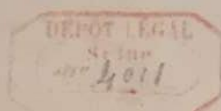 DÉPOT LÉGAL
Seine
4011